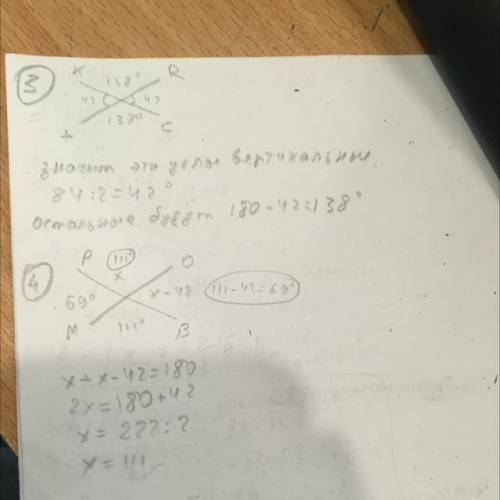 3
K 138° R
42 42
A 138° C
значит эти углы вертикальные
84:2=42°
остальные будут 180-42=138°
4
P 111° O
x
69° x-42 111-42=69°
M 111° B
x+x-42=180
2x=180+42
x=222:2
x=111